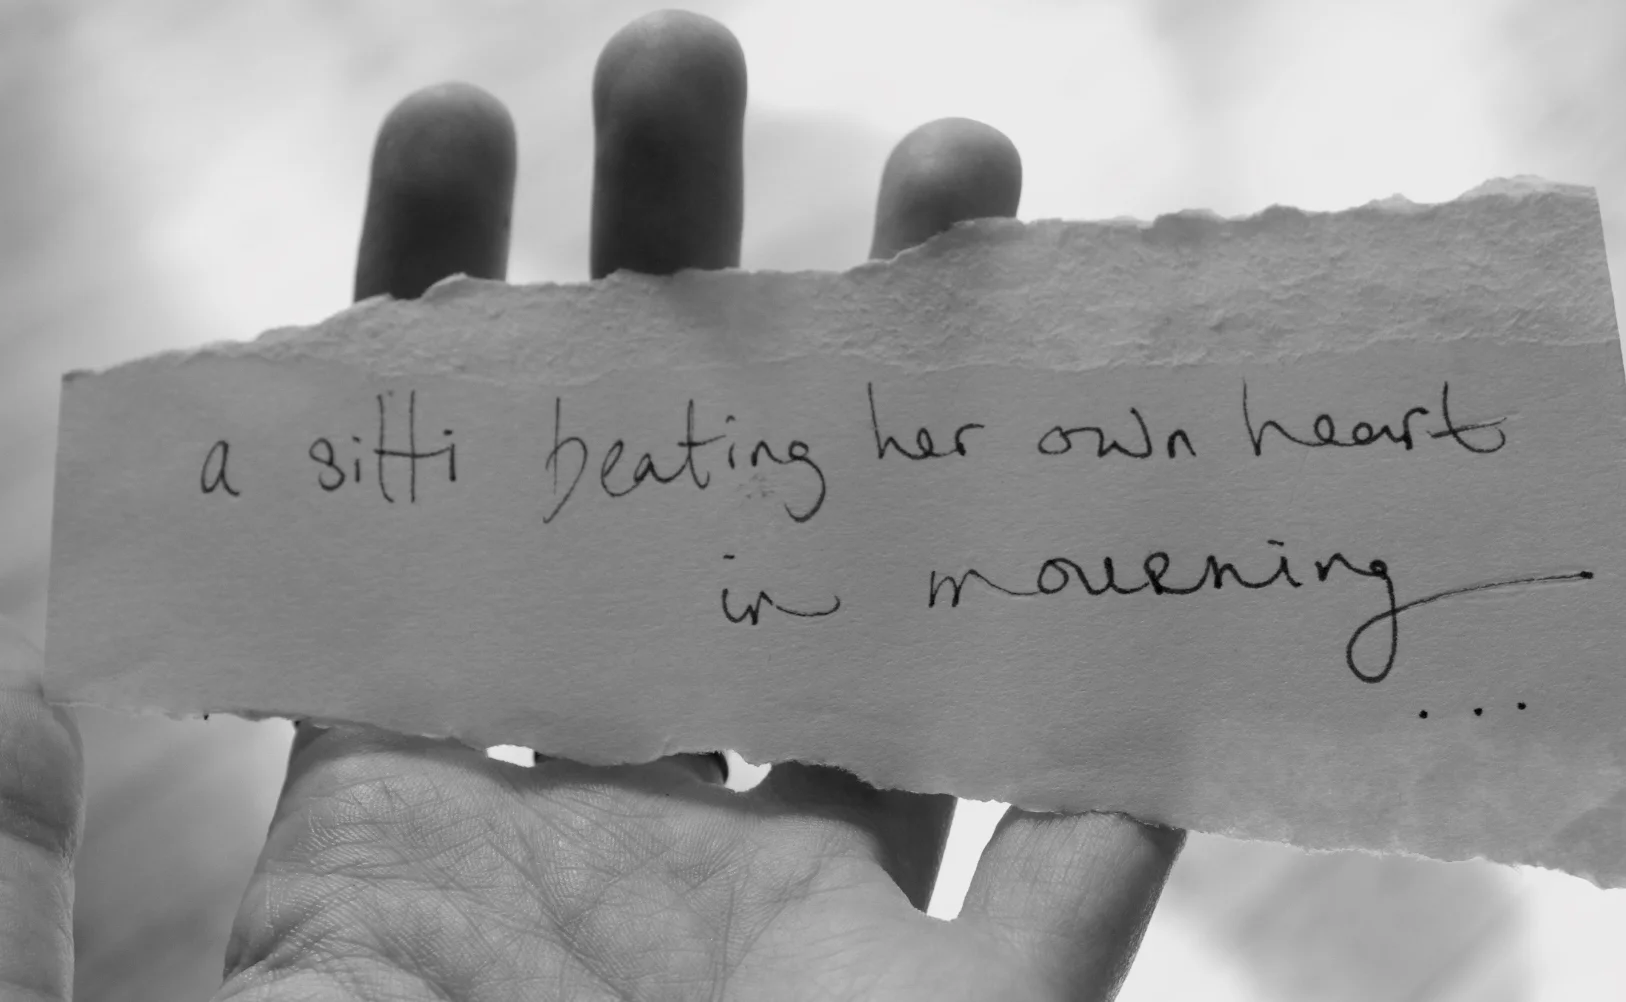 a sitti beating her own heart
in mourning
...